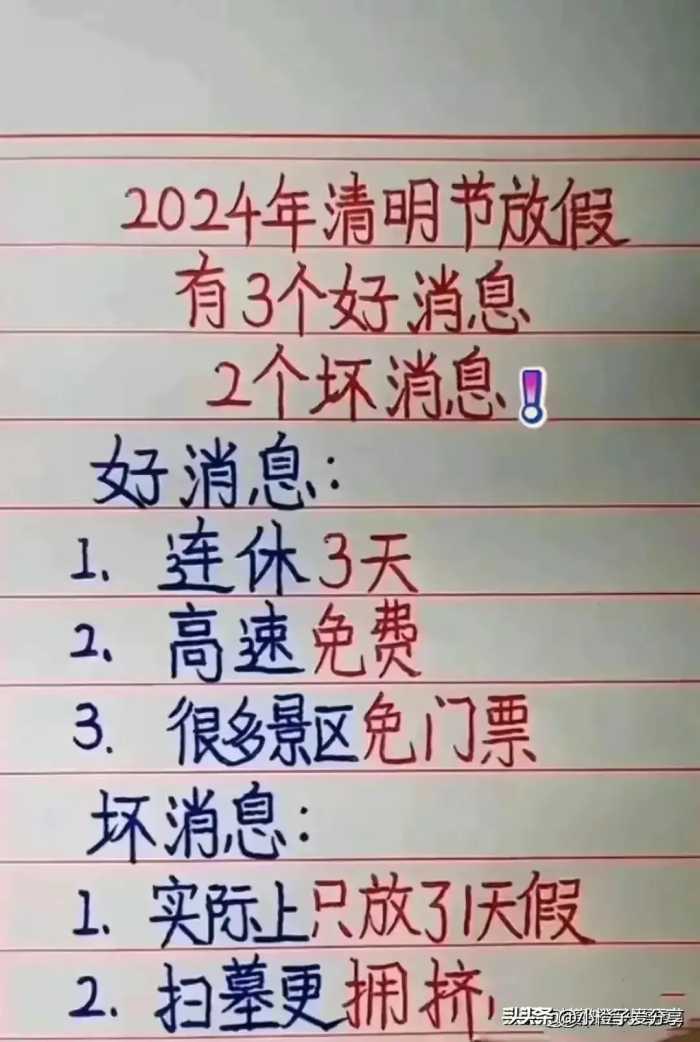 2024年清明节放假
有3个好消息
2个坏消息❗
好消息：
1. 连休3天
2、高速免费
3. 很多景区免门票
坏消息：
1. 实际上只放了1天假
2. 扫墓更拥挤
头条@小橙子爱分享